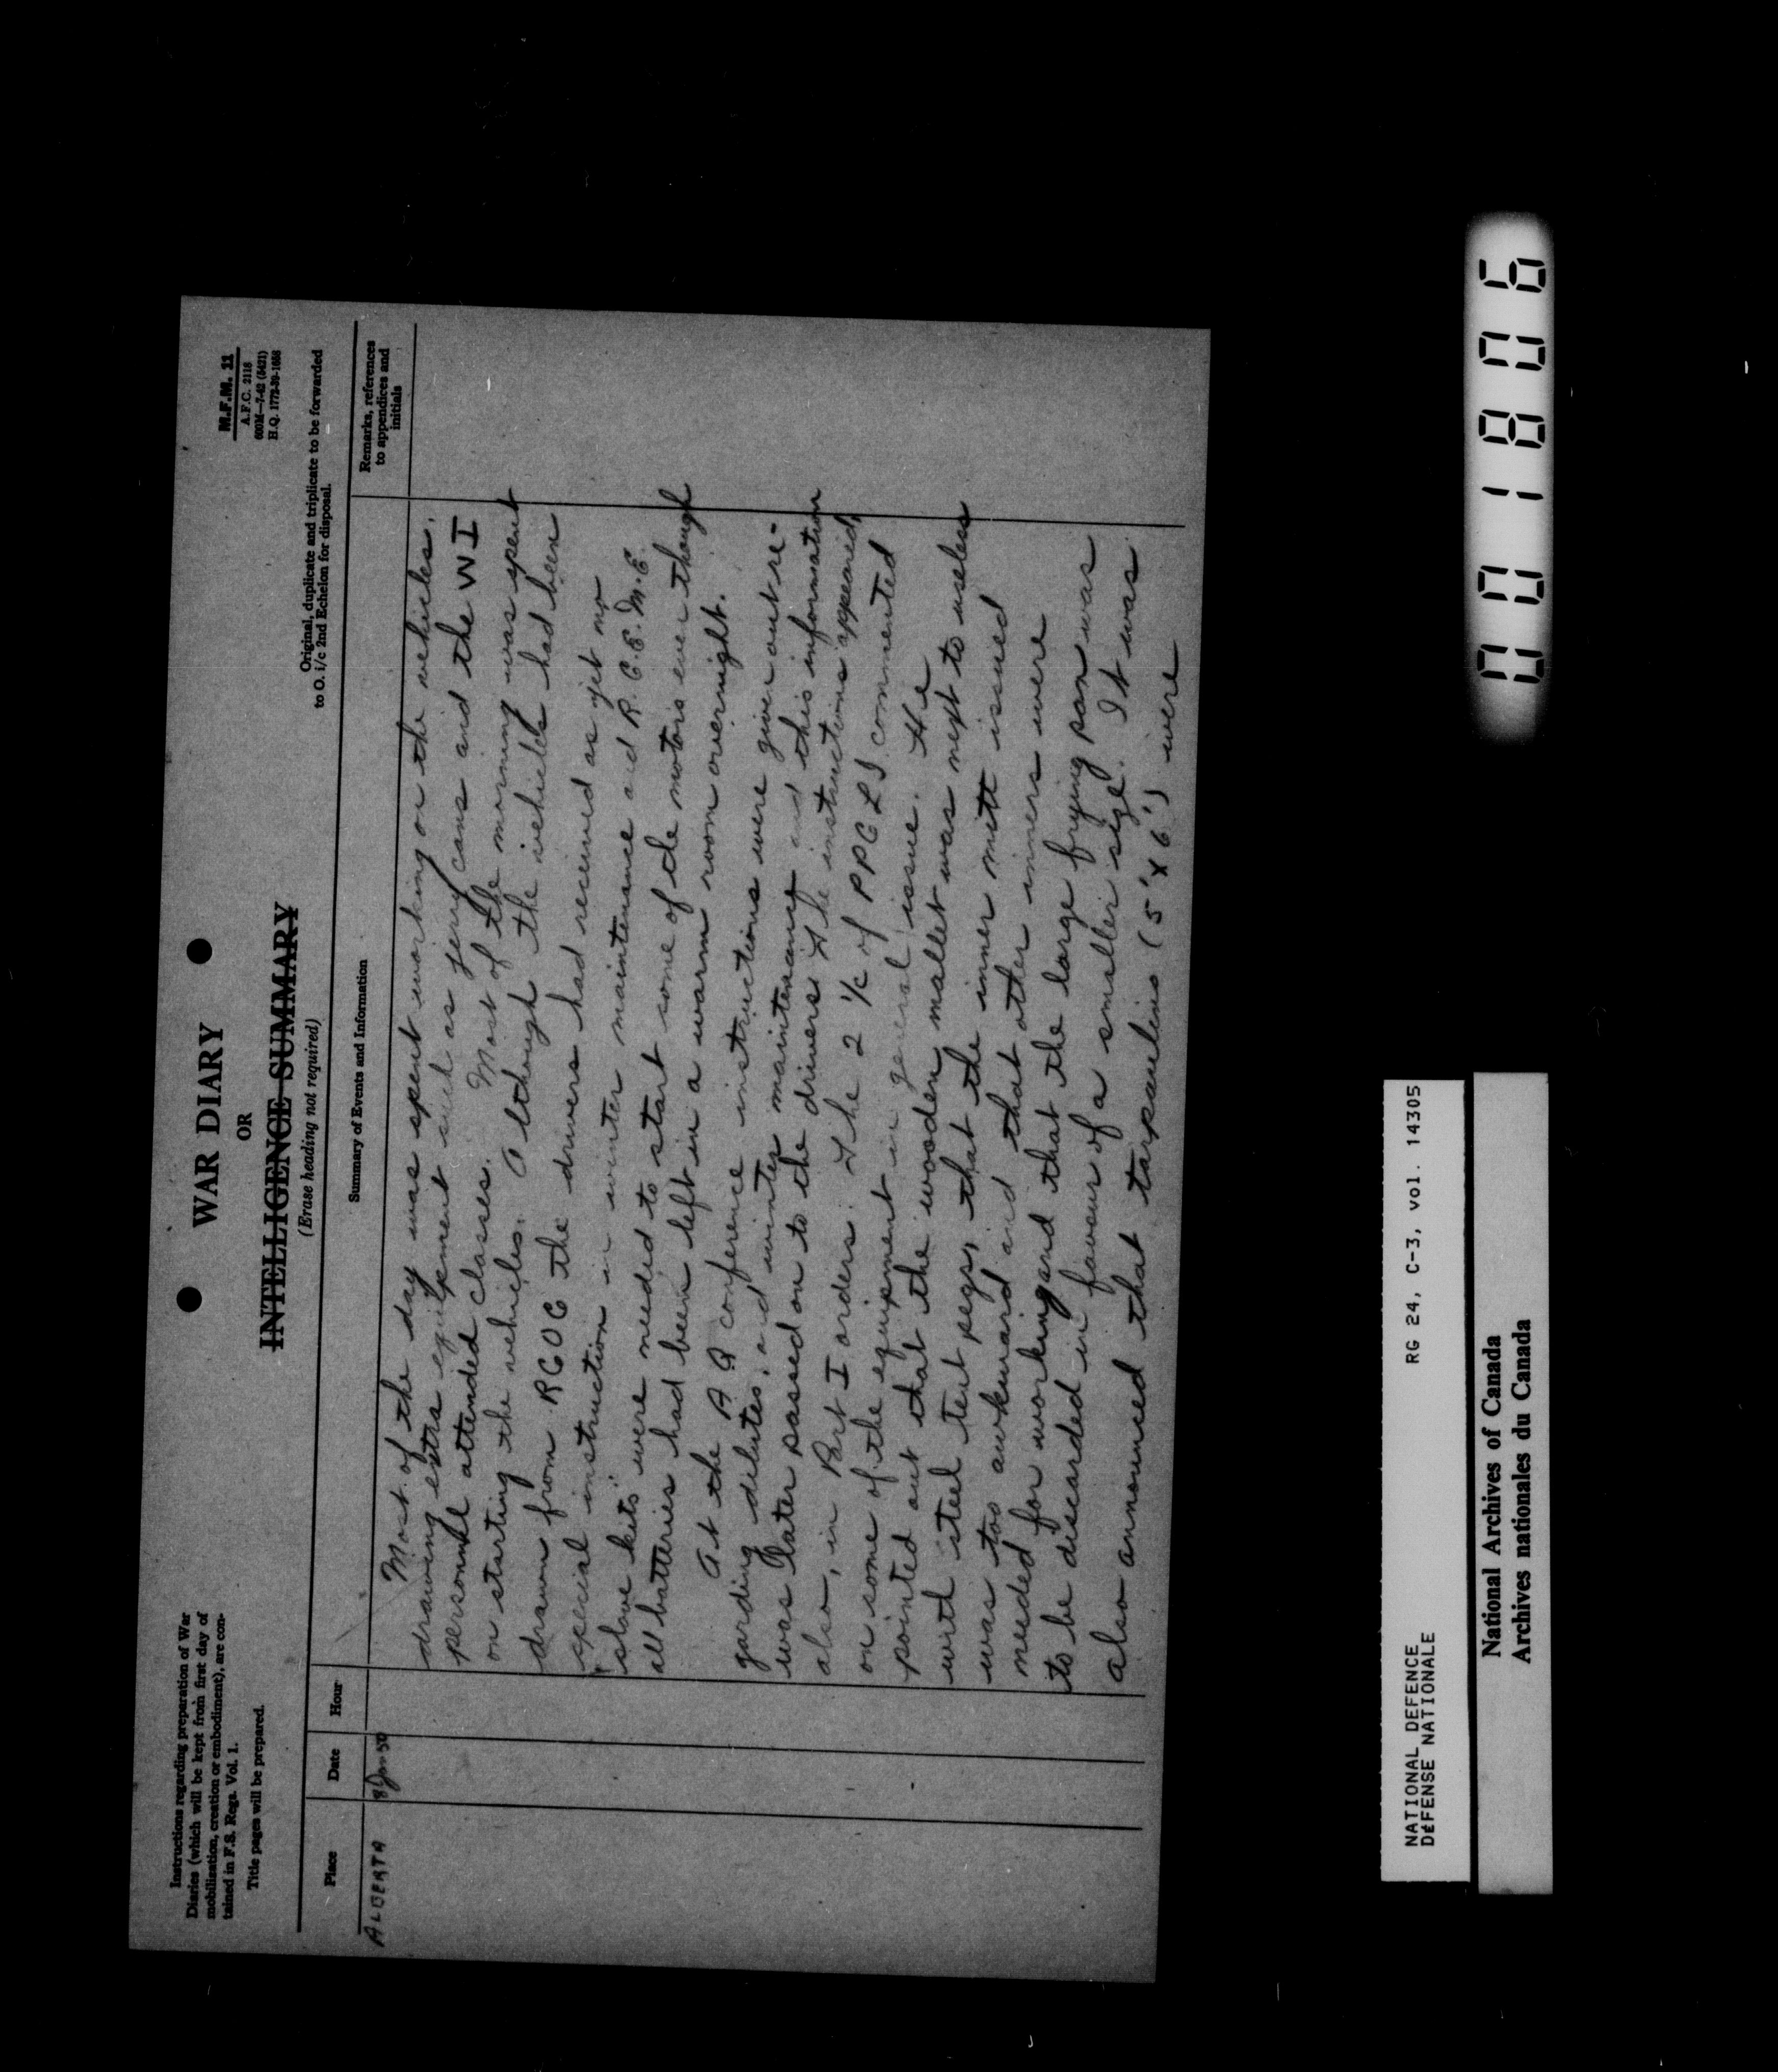 Instructions regarding preparation of War
Diaries (which will be kept from first day of
mobilization, creation or embodiment), are con-
tained in F.S. Regs. Vol. 1.
Title pages will be prepared.
WAR DIARY
OR
INTELLIGENCE SUMMARY
(Erase heading not required)
M.F.M. 11
A.F.C. 2118
600M—7-42 (5421)
H.Q. 1772-39-1658
Original, duplicate and triplicate to be forwarded
to O. i/c 2nd Echelon for disposal.
Place
Date
Hour
Summary of Events and Information
Remarks, references
to appendices and
initials
ALBERTA
8 Jan 50
Most of the day was spent working on the vehicles,
drawing extra equipment such as jerry cans and the WI
personnel attended classes. Most of the morning was spent
on starting the vehicles. Although the vehicles had been
drawn from RCOC the drivers had received as yet no
special instruction in winter maintenance and R.C.E.M.E.
"slave kits" were needed to start some of the motors even though
all batteries had been left in a warm room overnight.
At the AQ conference instructions were given out re-
garding dilutes, and winter maintenance and this information
was later passed on to the drivers. The instructions appeared,
also, in Part I orders. The 2 i/c of PPCLI commented
on some of the equipment in general issue. He
pointed out that the wooden mallet was next to useless
with steel tent pegs, that the inner mitt issued
was too awkward and that other inners were
needed for working and that the large frying pan was
to be discarded in favour of a smaller size. It was
also announced that tarpaulins (5' x 6') were
0011806
NATIONAL DEFENCE
DÉFENSE NATIONALE
RG 24, C-3, vol. 14305
National Archives of Canada
Archives nationales du Canada